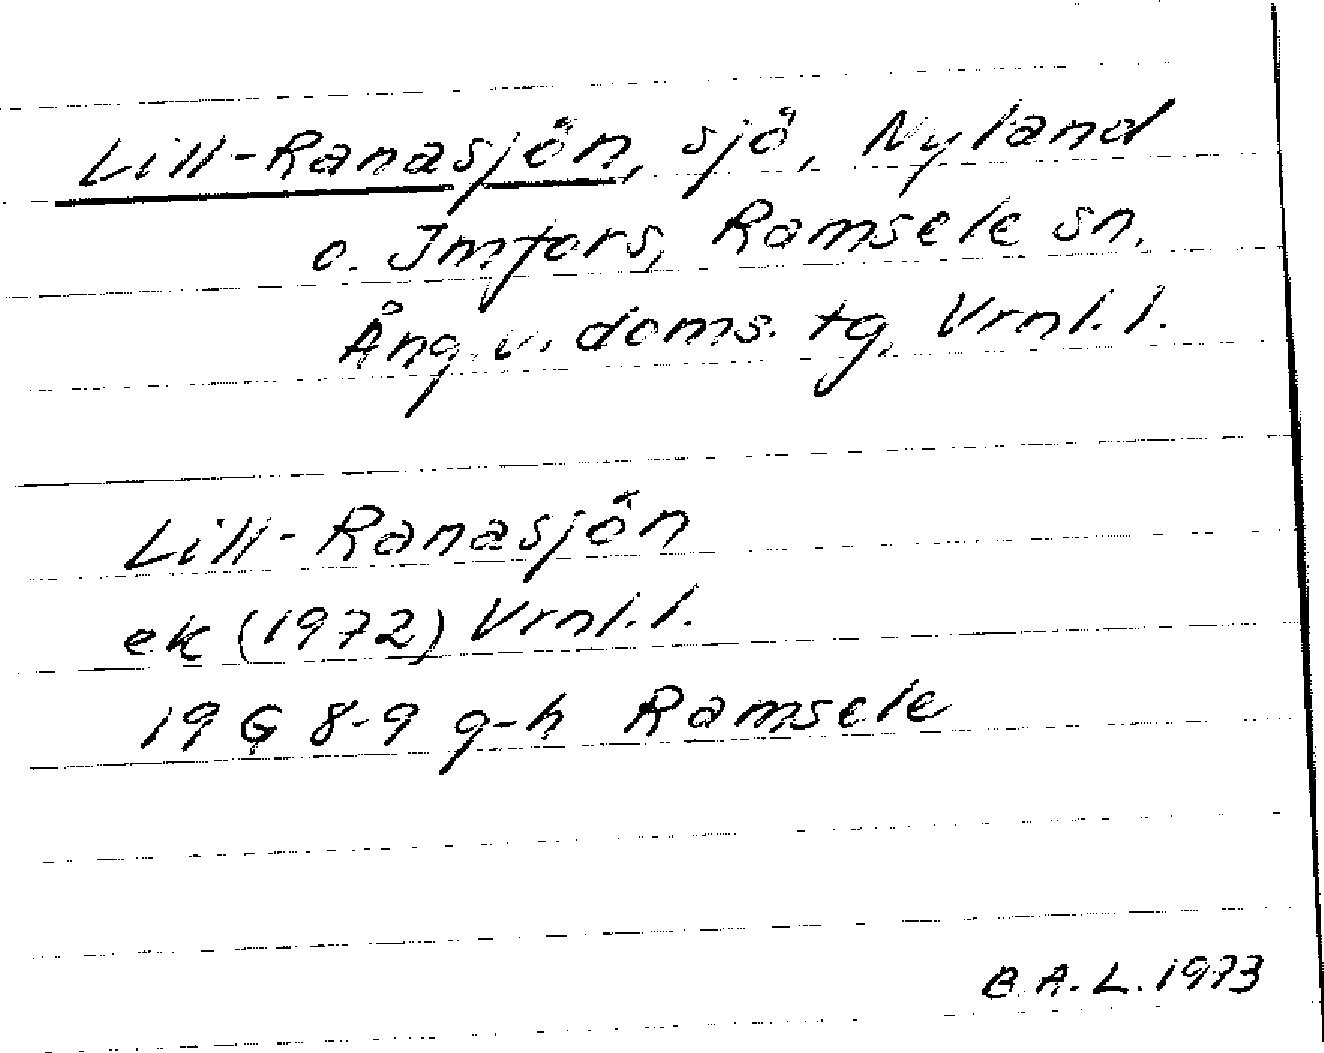 Lill-Ranasjön, sjö, Nyland
o. Imfors, Ramsele sn.
Ång. v. doms. tg, Vrnl. l.
Lill-Ranasjön
ek (1972) Vrnl. l.
19 G 8-9 g-h Ramsele
B. A. L. 1973